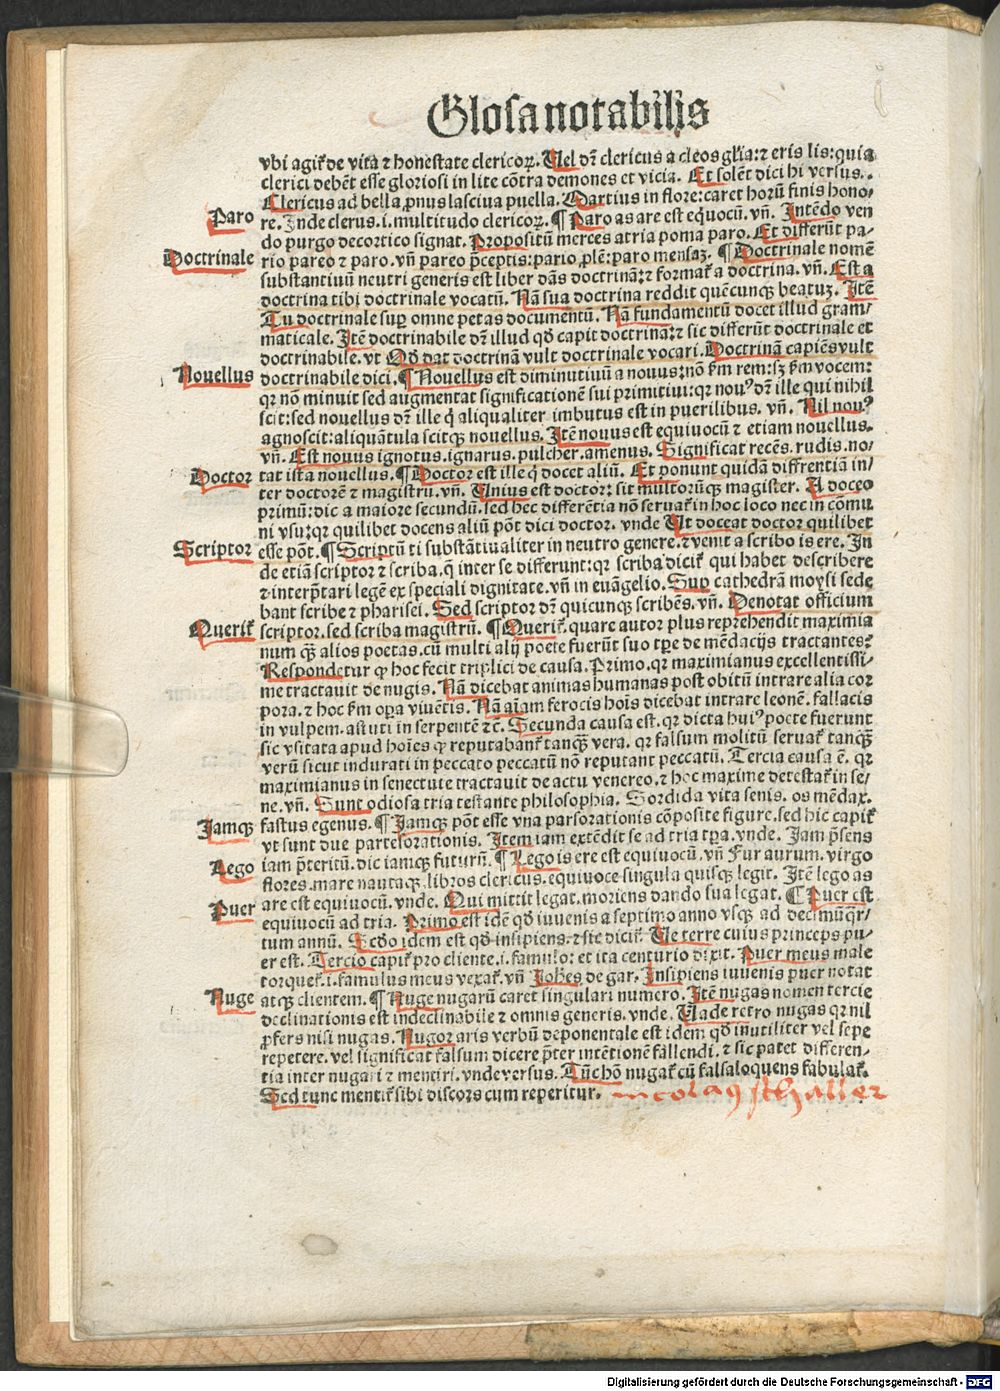 Glosa notabilis
vbi agit̉ de vita ⁊ honestate clericoꝝ. Uel dr̄ clericus a cleos gl̄ia:⁊ eris lis:quia
clerici debēt esse gloriosi in lite cōtra demones et vicia. Et solēt dici hi versus.
Clericus ad bella, pnus lasciua puella. Martius in flore:caret horū finis hono/
Paro
re. Inde clerus.i.multitudo clericoꝝ. ¶ Paro as are est eq̇uocū.vn̄. Intēdo ven
do purgo decortico signat. Propositū merces atria poma paro. Et differūt pa/
Doctrinale
rio pareo ⁊ paro. vn̄ pareo p̄ceptis:pario ꝓlē:paro mensaꝫ. ¶ Doctrinale nomē
substantiuū neutri generis est liber dās doctrinā:⁊ format̉ a doctrina. vn̄. Est a
doctrina tibi doctrinale vocatū. Nā sua doctrina reddit quēcunqꝫ beatuꝫ. Itē
Tu doctrinale suꝑ omne petas documentū. Nā fundamentū docet illud gram/
maticale. Itē doctrinabile dr̄ illud qd̄ capit doctrinā:⁊ sic differūt doctrinale et
doctrinabile. vt Qd̄ dat doctrinā vult doctrinale vocari. Doctrinā capiēs vult
Nouellus
doctrinabile dici. ¶ Nouellus est diminutiuū a nouus:nō ẜm rem:sꝫ ẜm vocem:
qꝛ nō minuit sed augmentat significationē sui primitiui:qꝛ nouꝰ dr̄ ille qui nihil
scit:sed nouellus dr̄ ille q̇ aliqualiter imbutus est in puerilibus. vn̄. Nil nouꝰ
agnoscit:aliquātula scitqꝫ nouellus. Itē nouus est equiuocū ⁊ etiam nouellus.
vn̄. Est nouus ignotus.ignarus.pulcher.amenus. Significat recēs.rudis.no/
Doctor
tat ista nouellus. ¶ Doctor est ille q̇ docet aliū. Et ponunt quidā diffrentiā in/
ter doctorē ⁊ magistrū.vn̄. Unius est doctor: sit multorūqꝫ magister. A doceo
primū:dic a maiore secundū.sed hec differētia nō seruat̉ in hoc loco nec in cōmu
ni vsu:qꝛ quilibet docens aliū pōt dici doctor. vnde Ut doceat doctor quilibet
Scriptor
esse pōt. ¶ Scriptū ti substātiualiter in neutro genere.⁊ venit a scribo is ere. In
de etiā scriptor ⁊ scriba.q̄ inter se differunt:qꝛ scriba dicit̉ qui habet describere
⁊ interp̄tari legē ex speciali dignitate. vn̄ in euāgelio. Suꝑ cathedrā moysi sede
bant scribe ⁊ pharisei. Sed scriptor dr̄ quicunqꝫ scribēs. vn̄. Denotat officium
Querit̉
scriptor.sed scriba magistrū. ¶ Querit̉. quare autor plus reprehendit maximia
num qꝫ alios poetas.cū multi alij poete fuerūt suo tꝑe de mēdacijs tractantes?
Respondetur ꝙ hoc fecit triplici de causa. Primo. qꝛ maximianus excellentissi/
me tractauit de nugis. Nā dicebat animas humanas post obitū intrare alia cor
pora.⁊ hoc ẜm oꝑa viuētis. Nā aīam ferocis hoīs dicebat intrare leonē.fallacis
in vulpem.astuti in serpentē ⁊c̄. Secunda causa est.qꝛ dicta huiꝰ poete fuerunt
sic vsitata apud hoīes ꝙ reputabant̉ tanqꝫ vera. qꝛ falsum molitū seruat̉ tanqꝫ
verū sicut indurati in peccato peccatū nō reputant peccatū. Tercia causa ē. qꝛ
maximianus in senectute tractauit de actu venereo.⁊ hoc maxime detestat̉ in se/
ne.vn̄. Sunt odiosa tria testante philosophia. Sordida vita senis. os mēdax.
Iamqꝫ
fastus egenus. ¶ Iamqꝫ pōt esse vna pars orationis cōposite figure.sed hic capit̉
vt sunt due partes orationis. Item iam extēdit se ad tria tꝑa.vnde. Iam p̄sens
Lego
iam p̄teritū.dic iamqꝫ futurū. ¶ Lego is ere est equiuocū.vn̄ Fur aurum.virgo
flores.mare nauta qꝫ.libros clericus.equiuoce singula quisqꝫ legit. Itē lego as
Puer
are est equiuocū.vnde. Qui mittit legat.moriens dando sua legat. ¶ Puer est
equiuocū ad tria. Primo est idē qd̄ iuuenis a septimo anno vsqꝫ ad decimūq̄r/
tum annū. Scd̄o idem est qd̄ insipiens.⁊ sic dicit̉. Ue terre cuius princeps pu/
er est. Tercio capit̉ pro cliente.i.famulo: et ita centurio dixit. Puer meus male
torquet̉.i.famulus meus vexat̉.vn̄ Johēs de gar. Insipiens iuuenis puer notat
Nuge
atqꝫ clientem. ¶ Nuge nugarū caret singulari numero. Itē nugas nomen tercie
declinationis est indeclinabile ⁊ omnis generis.vnde. Uade retro nugas qꝛ nil
ꝓfers nisi nugas. Nugor aris verbū deponentale est idem qd̄ inutiliter vel sepe
repetere.vel significat falsum dicere p̄ter intētionē fallendi.⁊ sic patet differen/
tia inter nugari ⁊ mentiri.vnde versus. Tūc hō nugat̉ cū falsa loquens fabulat̉.
Sed tunc mentit̉ sibi discors cum reperitur.
Digitalisierung gefördert durch die Deutsche Forschungsgemeinschaft - DFG